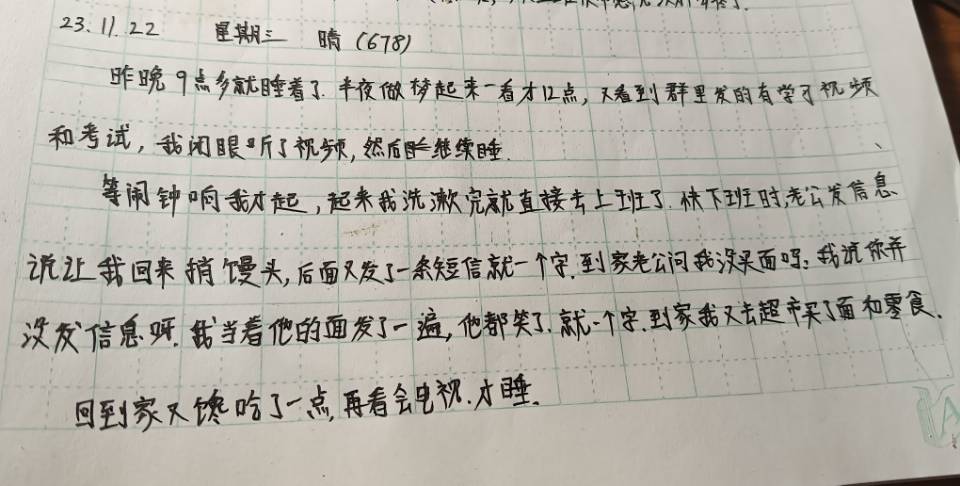 23.11.22 星期三 晴(678)
昨晚9点多就睡着了.半夜做梦起来一看才12点,又看到群里发的有学习视频
和考试,我闭眼听了视频,然后继续睡.
等闹钟响我才起,起来我洗漱完就直接去上班了.快下班时,老公发信息
说让我回来捎馒头,后面又发了一条短信就一个字.到家老公问我没买面吗.我说你并
没发信息呀.我当着他的面发了一遍,他都笑了.就一个字.到家我又去超市买了面和零食.
回到家又馋吃了一点,再看会电视.才睡.